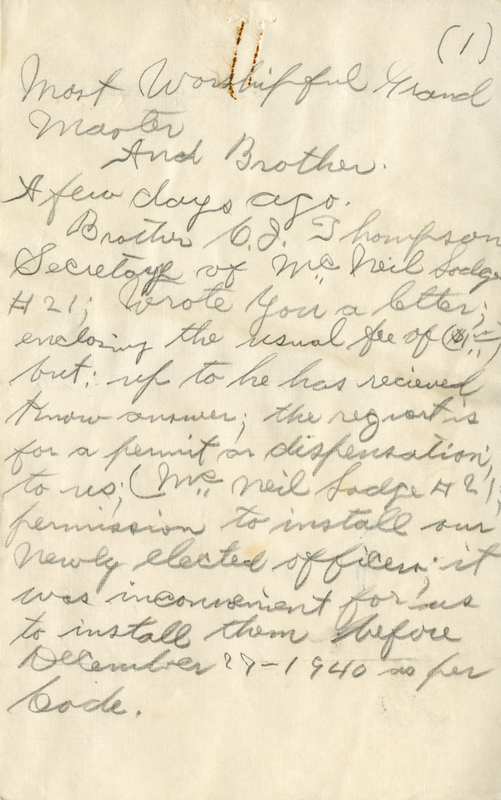 (1)
Most Worshipful Grand
Master
And Brother.
A few days ago.
Brother C. J. Thompson
Secretary of Mc Neil Lodge
# 21; Wrote You a letter;
enclosing the usual fee of
but: up to he has recieved
know answer; the request is
for a permit or dispensation;
to us; (Mc Neil Lodge # 21;
permission to install our
newly elected officers; it
was inconvenient for us
to install them before
December 27-1940 as per
Code.